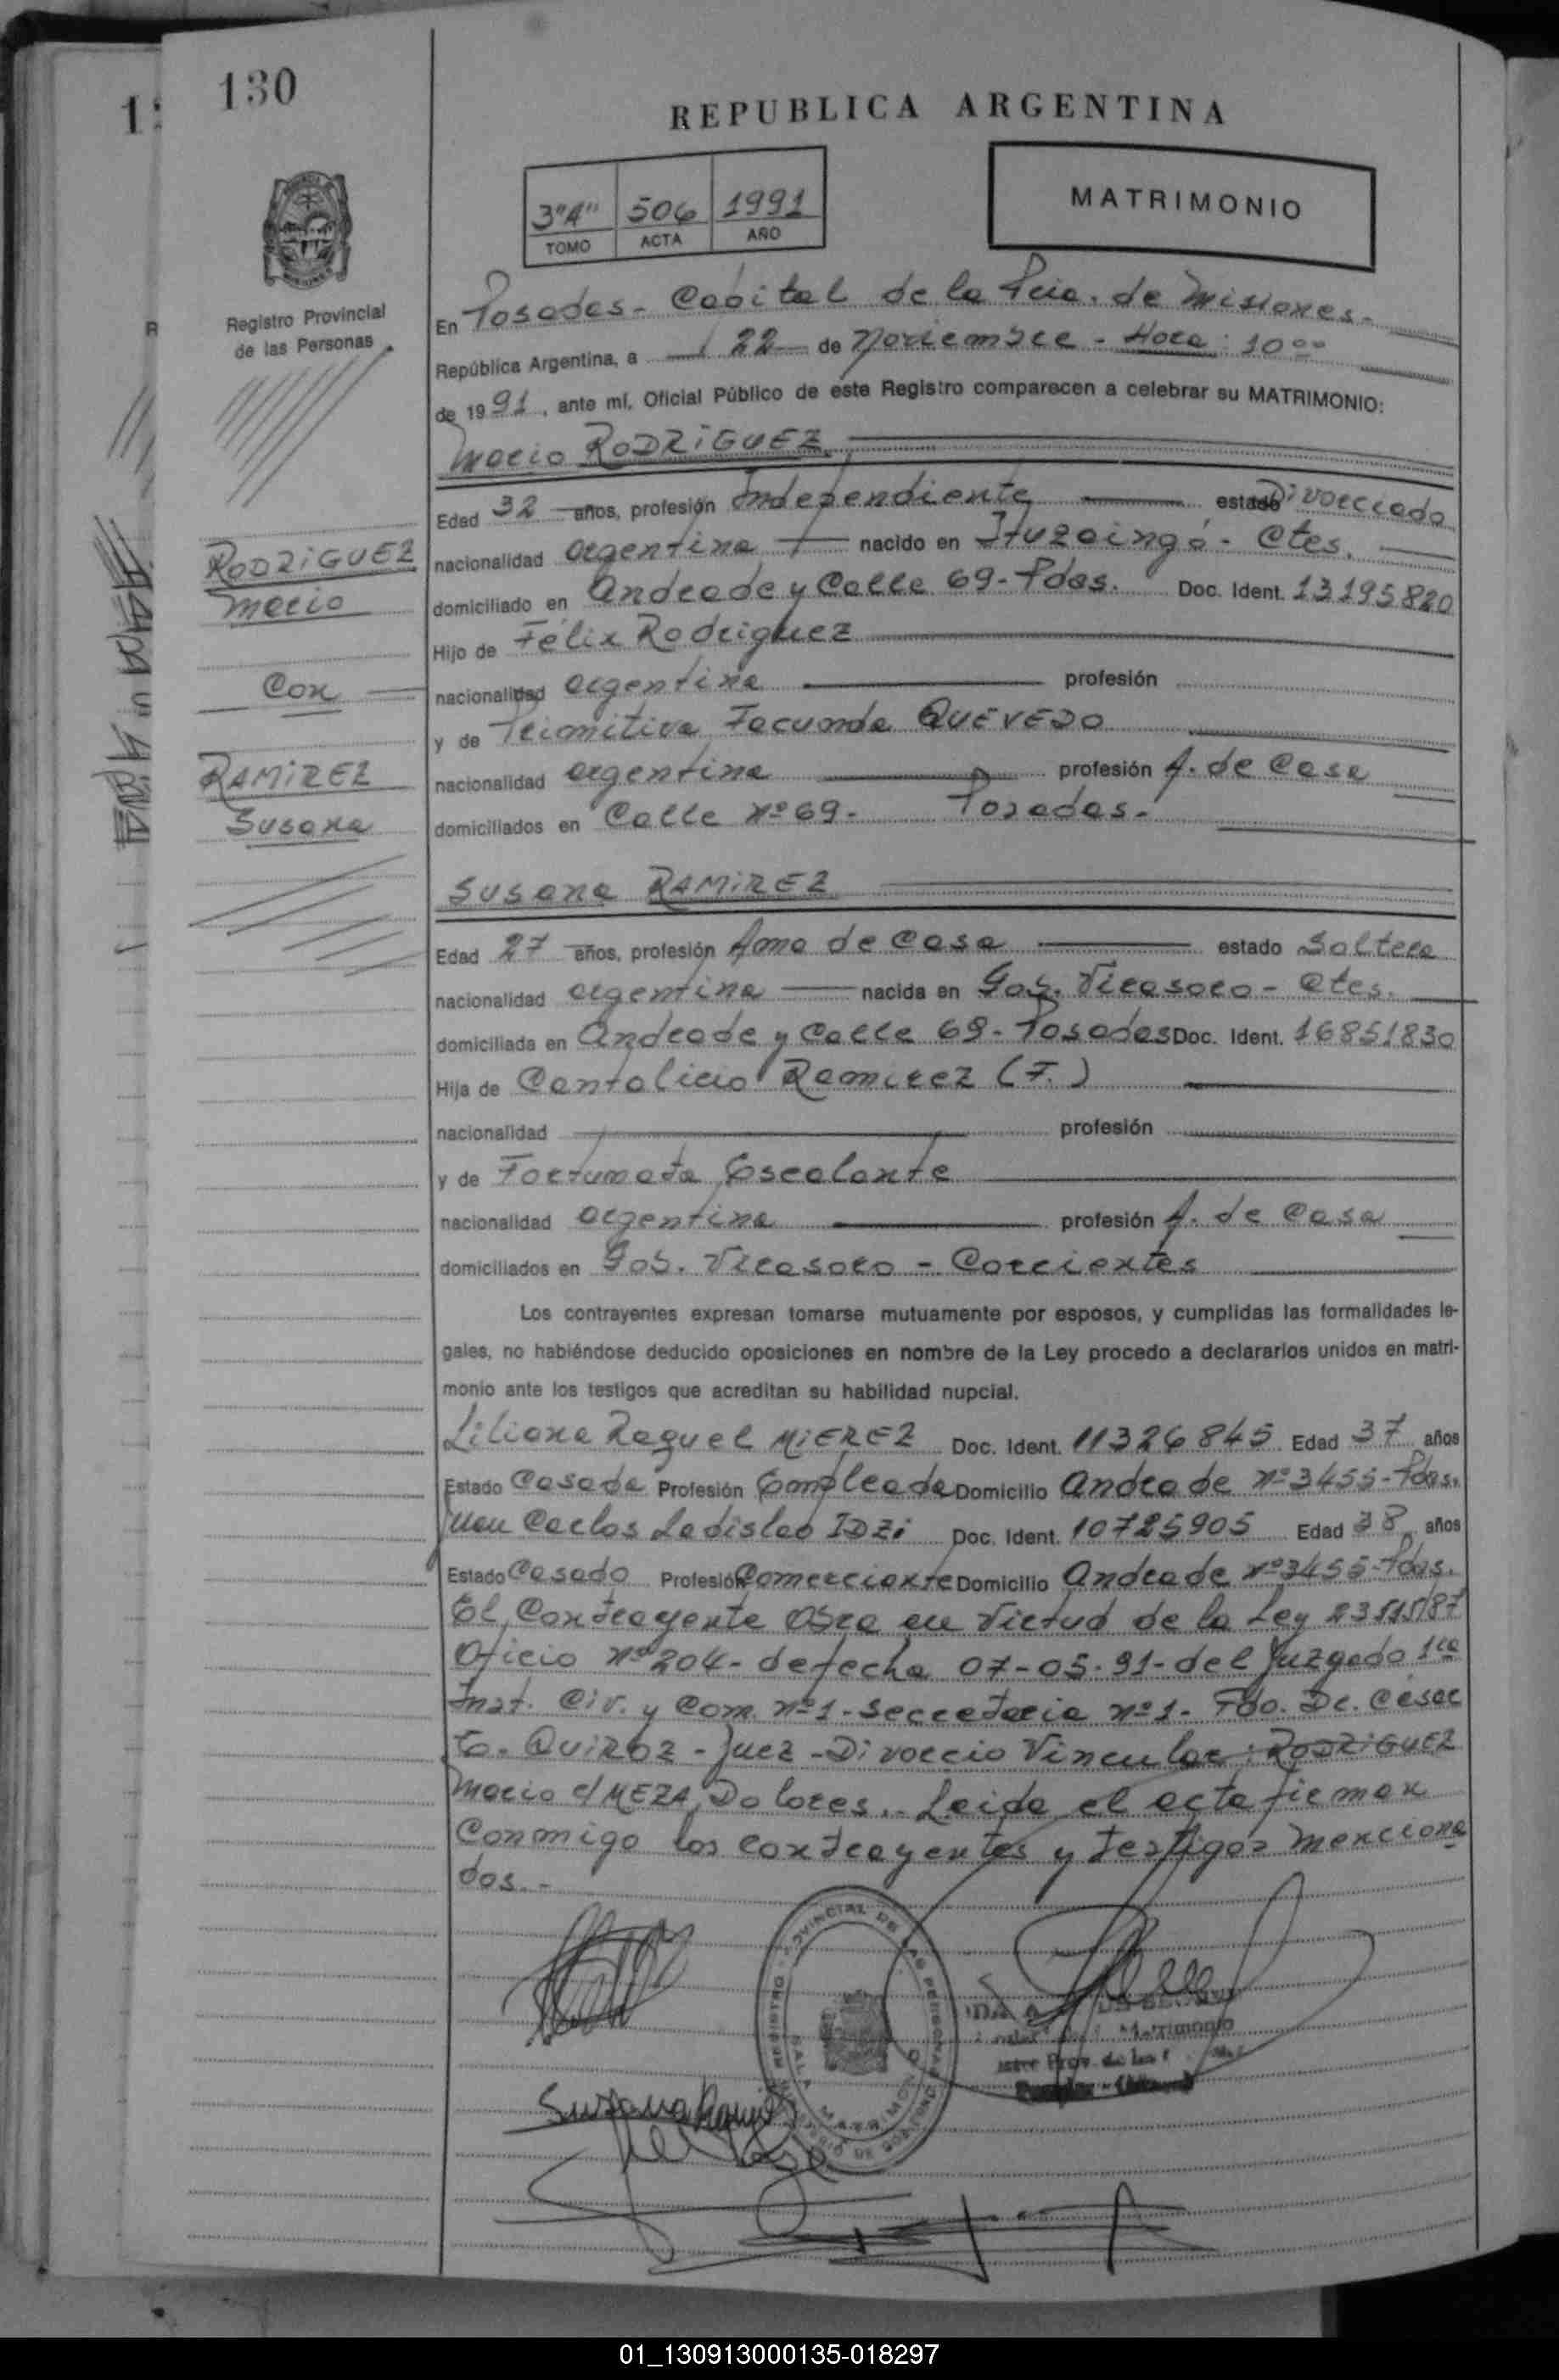 130
REPUBLICA ARGENTINA
3º"A" 506 1991
TOMO ACTA AÑO
MATRIMONIO
Registro Provincial
de las Personas
En Posadas - Capital de la Pcia. de Misiones.-
República Argentina, a 22 de Noviembre - Hora: 10ºº
de 1991, ante mí, Oficial Público de este Registro comparecen a celebrar su MATRIMONIO:
Mario RODRIGUEZ
Edad 32 años, profesión Independiente estado Divorciado
nacionalidad argentina nacido en Ituzaingó - Ctes.
domiciliado en Andrade y Calle 69 - Pdas. Doc. Ident. 13195820
Hijo de Félix Rodriguez
nacionalidad argentina profesión
y de Primitiva Facunda QUEVEDO
nacionalidad argentina profesión A. de Casa
domiciliados en Calle Nº 69 - Posadas.-
RODRIGUEZ
Mario
Con
RAMIREZ
Susana
Susana RAMIREZ
Edad 27 años, profesión Ama de Casa estado Soltera
nacionalidad argentina nacida en Gob. Virasoro - Ctes.
domiciliada en Andrade y Calle 69 - Posadas Doc. Ident. 16851830
Hija de Cantalicio Ramirez (F.)
nacionalidad profesión
y de Fortunata Escalante
nacionalidad argentina profesión A. de Casa
domiciliados en Gob. Virasoro - Corrientes
Los contrayentes expresan tomarse mutuamente por esposos, y cumplidas las formalidades le-
gales, no habiéndose deducido oposiciones en nombre de la Ley procedo a declararlos unidos en matri-
monio ante los testigos que acreditan su habilidad nupcial.
Liliana Raquel MIEREZ Doc. Ident. 11326845 Edad 37 años
Estado Casada Profesión Empleada Domicilio Andrade Nº 3455 - Pdas.
Juan Carlos Ladislao IDZI Doc. Ident. 10725905 Edad 38 años
Estado Casado Profesión Comerciante Domicilio Andrade Nº 3455 - Pdas.
El Contrayente obra en Virtud de la Ley 23515/87
Oficio Nº 204 - de fecha 07-05-91 - del Juzgado 1ra
Inst. Civ. y Com. Nº 1 - Secretaria Nº 1 - Fdo. Dr. César
QUIROZ - Juez - Divorcio Vincular: RODRIGUEZ
Mario c/ MEZA, Dolores.- Leida el acta firman
Conmigo los contrayentes y testigos menciona
dos.-
Matrimonio
Prov. de las
Susana
01_130913000135-018297